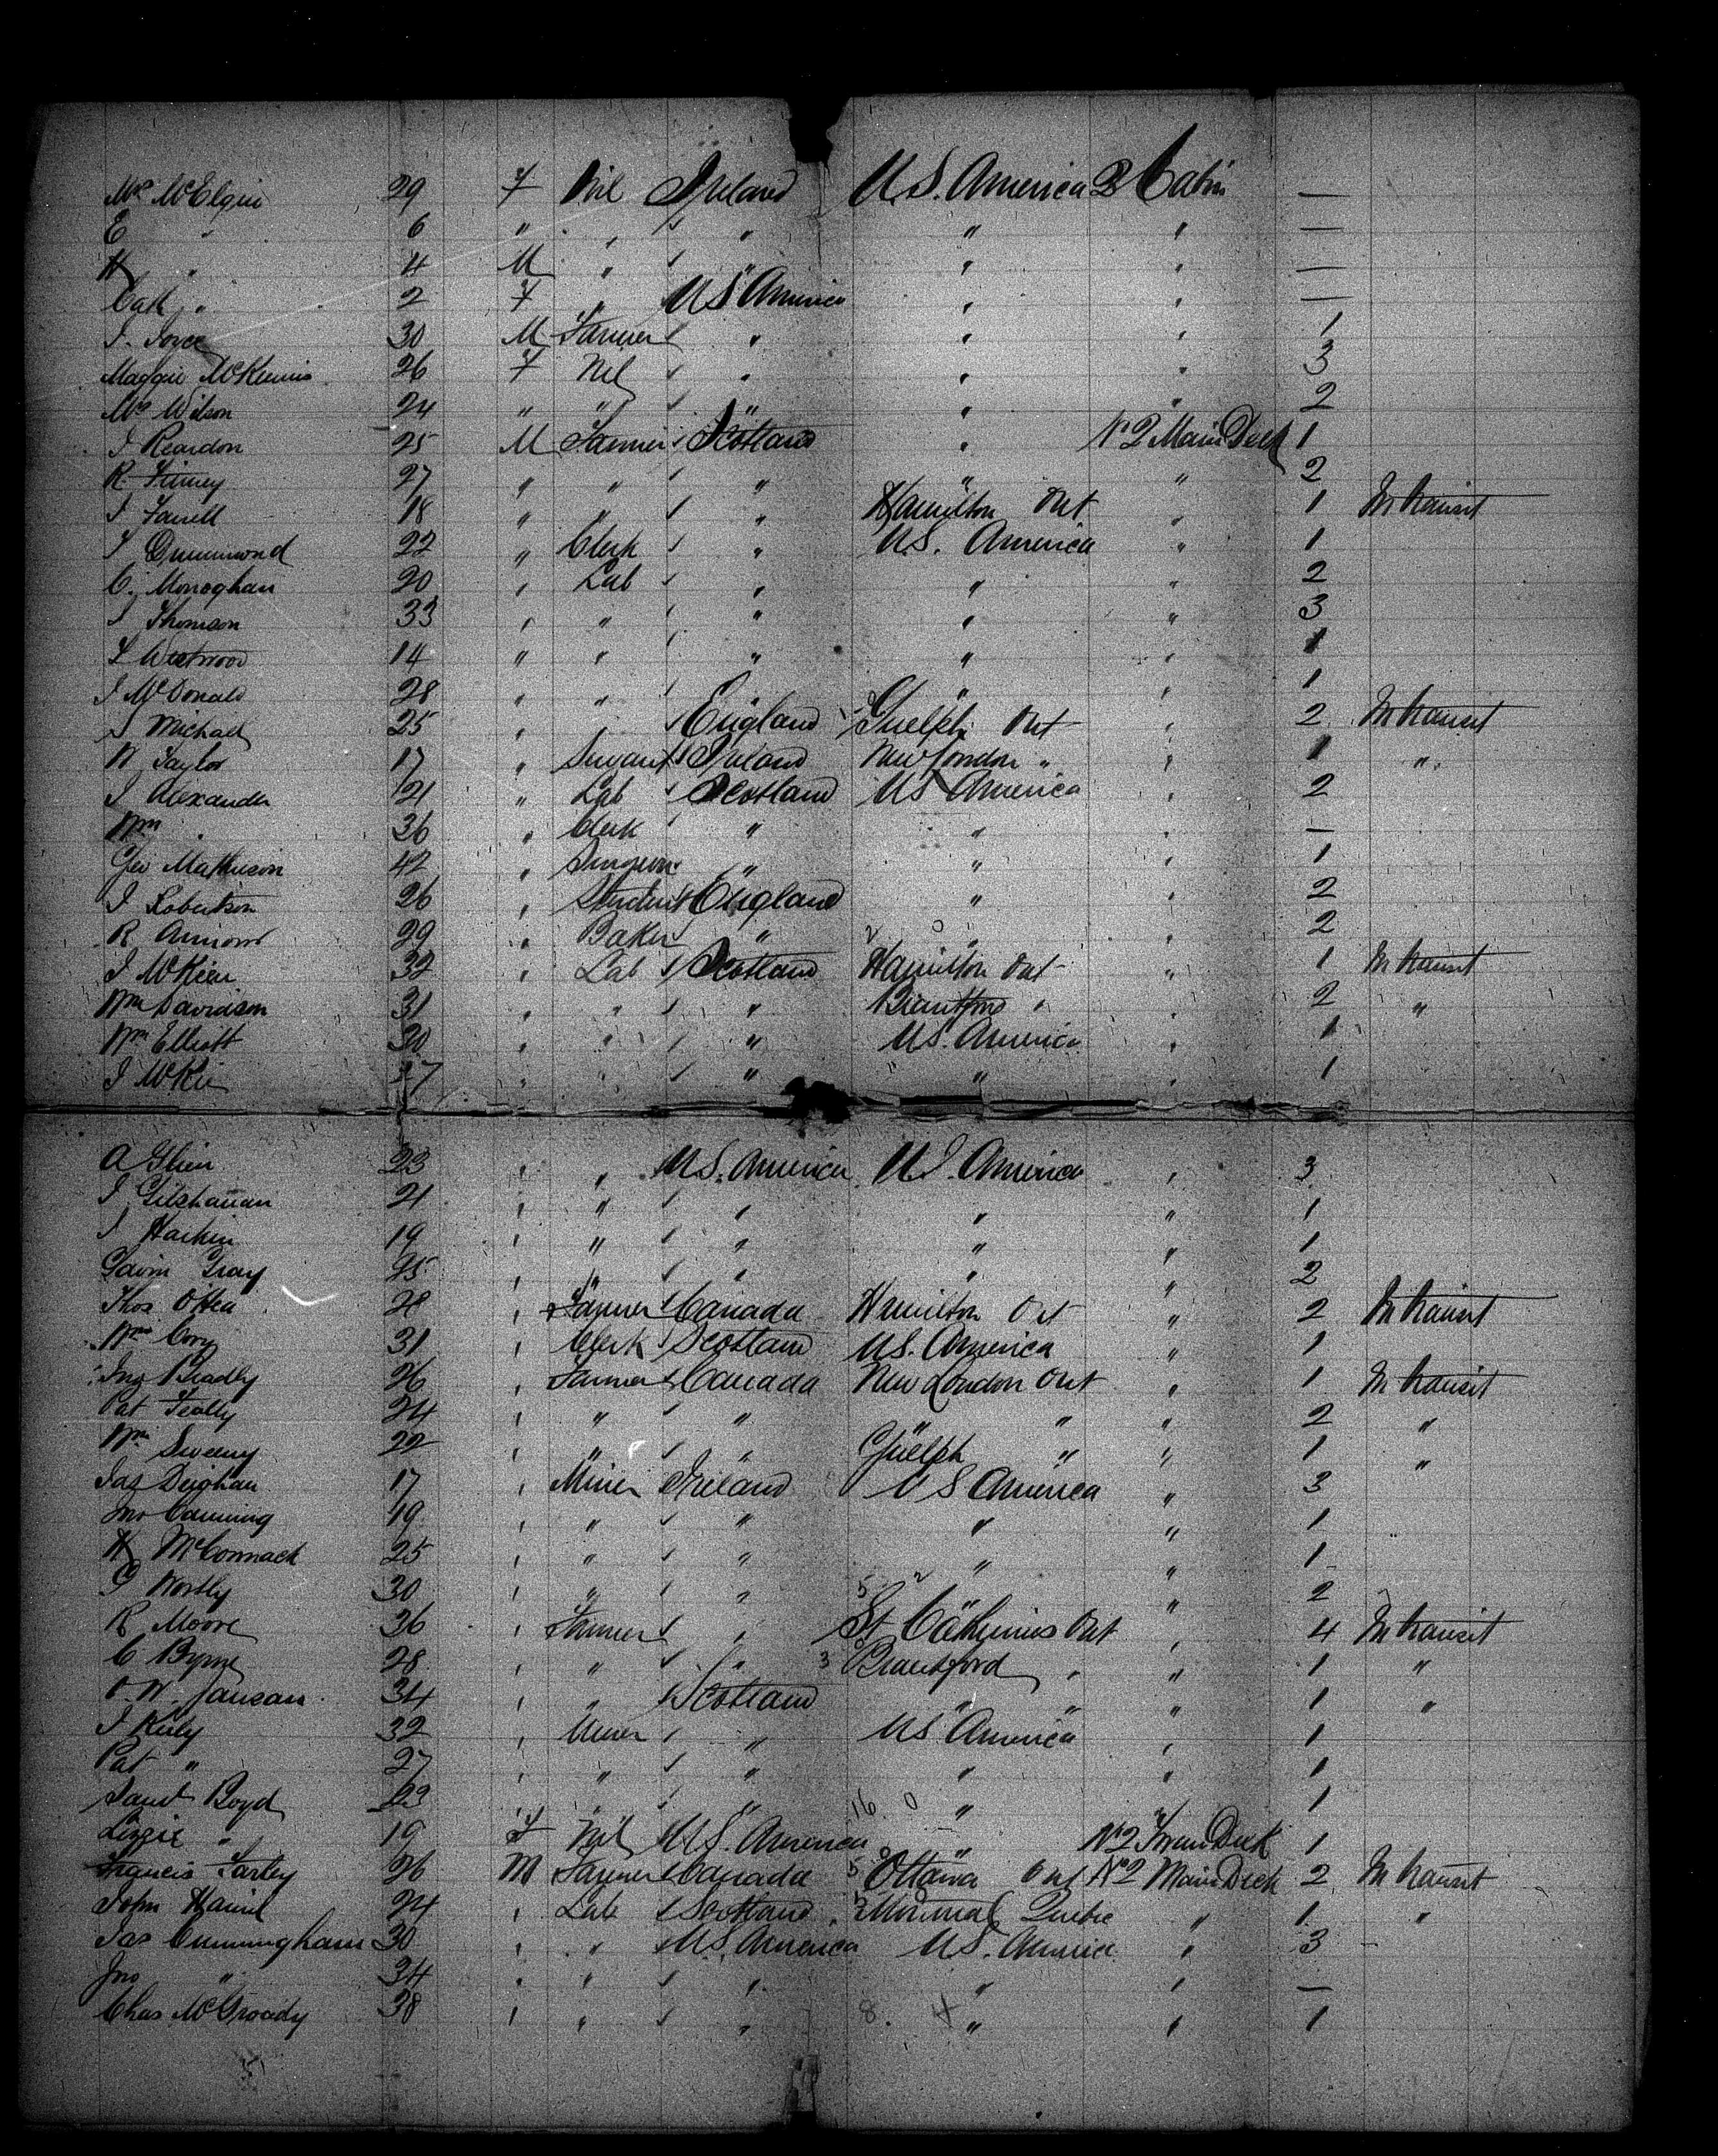 Mrs McElgin 29 F Nil Ireland U.S. America 2 Cabin —
E " 6 " " " " " —
H " 4 M " " " " —
Cath " 2 F " U S America " " —
J. Joyce 30 M Farmer " " " 1
Maggie McKinnis 26 F Nil " " " 3
Mrs Wilson 24 " " " " " 2
J Reardon 25 M Farmer Scotland " No 2 Main Deck 1
R. Finney 27 " " " " " 2
J Farrell 18 " " " Hamilton Ont " 1 In transit
T Drummond 22 " Clerk " U.S. America " 1
C. Monoghan 20 " Lab " " " 2
J Thomson 33 " " " " " 3
T Westwood 14 " " " " " 1
J McDonald 28 " " " " " 1
J Michael 25 " England Guelph Ont " 2 In transit
W Taylor 17 " Servant Ireland New London " " 1 "
J Alexander 21 " Lab Scotland US America " 2
Wm " 36 " Clerk " " " —
Geo Mathieson 42 " Surgeon " " " 1
J Robertson 26 " Student England " " 2
R 29 " Baker " " " 2
J McKien 32 " Lab Scotland Hamilton Ont " 1 In transit
Wm Davidson 31 " " " Brantford " " 2 "
Wm Elliott 30 " " " U.S. America " 1
J McKie 37 " " " " " 1
A Glien 23 " " U.S. America U.S. America " 3
J Gilshanan 21 " " " " " 1
J Harkin 19 " " " " " 1
Gavin Gray 25 " " " " " 2
Thos O'Hea 28 " Farmer Canada Hamilton Ont " 2 In transit
Wm Cory 31 " Clerk Scotland U.S. America " 1
Jno Bradly 26 " Farmer Canada New London Ont " 1 In transit
Pat Feolly 24 " " " " " 2 "
Wm Sweeny 22 " " " Guelph " " 1 "
Jas Deighan 17 " Miner Ireland U S America " 3
Jno Canning 19 " " " " " 1
H McCormack 25 " " " " " 1
G Wortly 30 " " " " " 2
R Moore 36 " Farmer " St Catherines Ont " 4 In transit
C Byrne 28 " " " 3 Brantford " " 1 "
O. W. Jansan 34 " " Scotland " " " 1 "
J Kiely 32 " Miner " US America " 1
Pat " 27 " " " " " 1
Saml Boyd 23 " " " 16 0 " 1
Lizzie " 19 F Nil U.S. America " No 2 Deck 1
Francis Farley 26 M Farmer Canada 5 Ottawa Ont No 2 Main Deck 2 In transit
John Hamil 24 " Lab Scotland Montreal Quebec " 1 "
Jas Cunningham 30 " " U.S. America U.S. America " 3
Jno " 34 " " " " " —
Chas McGroody 38 " " " 8 4 " " 1